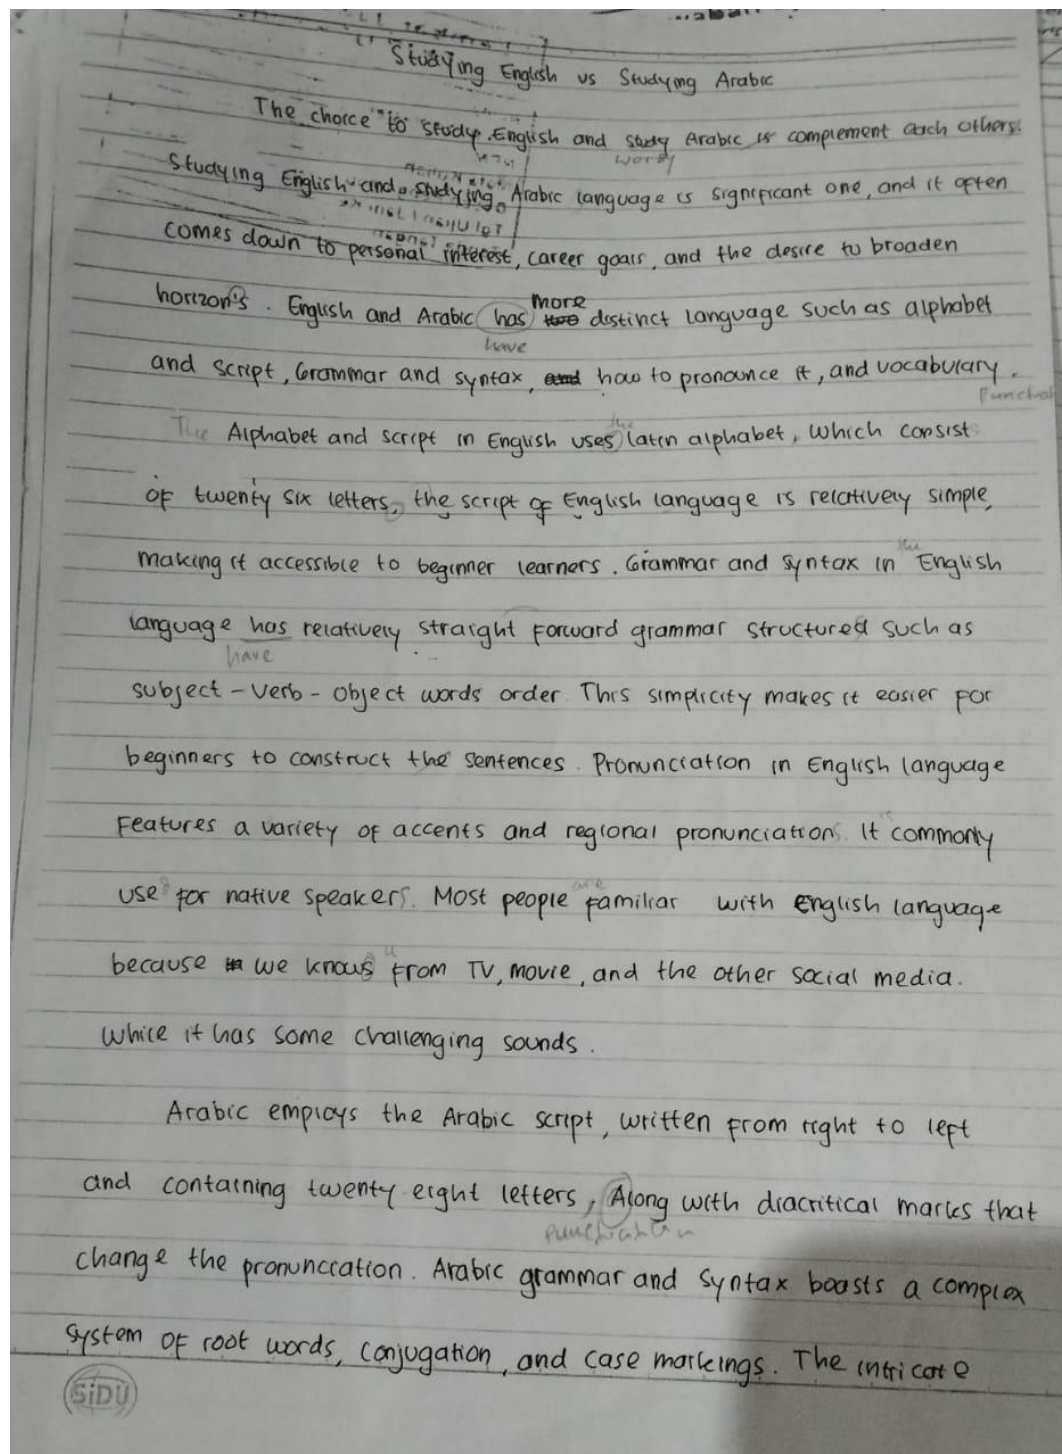 Studying English vs Studying Arabic
The choice to study English and study Arabic is complement each others.
wordy
Studying English and studying Arabic language is significant one, and it often
comes down to personal interest, career goals, and the desire to broaden
horizon's. English and Arabic has more distinct language such as alphabet
have
and script, Grammar and syntax, how to pronounce it, and vocabulary.
Punctuat
The Alphabet and script in English uses the latin alphabet, which consist
of twenty six letters, the script of English language is relatively simple,
making it accessible to beginner learners. Grammar and syntax in the English
language has relatively straight forward grammar structured such as
have
subject - verb - object words order. This simplicity makes it easier for
beginners to construct the sentences. Pronunciation in English language
Features a variety of accents and regional pronunciation. It is commonly
use for native speakers. Most people are familiar with English language
because we knows it from TV, movie, and the other social media.
While it has some challenging sounds.
Arabic employs the Arabic script, written from right to left
and containing twenty eight letters, Along with diacritical marks that
punctuation
change the pronunciation. Arabic grammar and syntax boasts a complex
system of root words, conjugation, and case markings. The intricate
SiDU